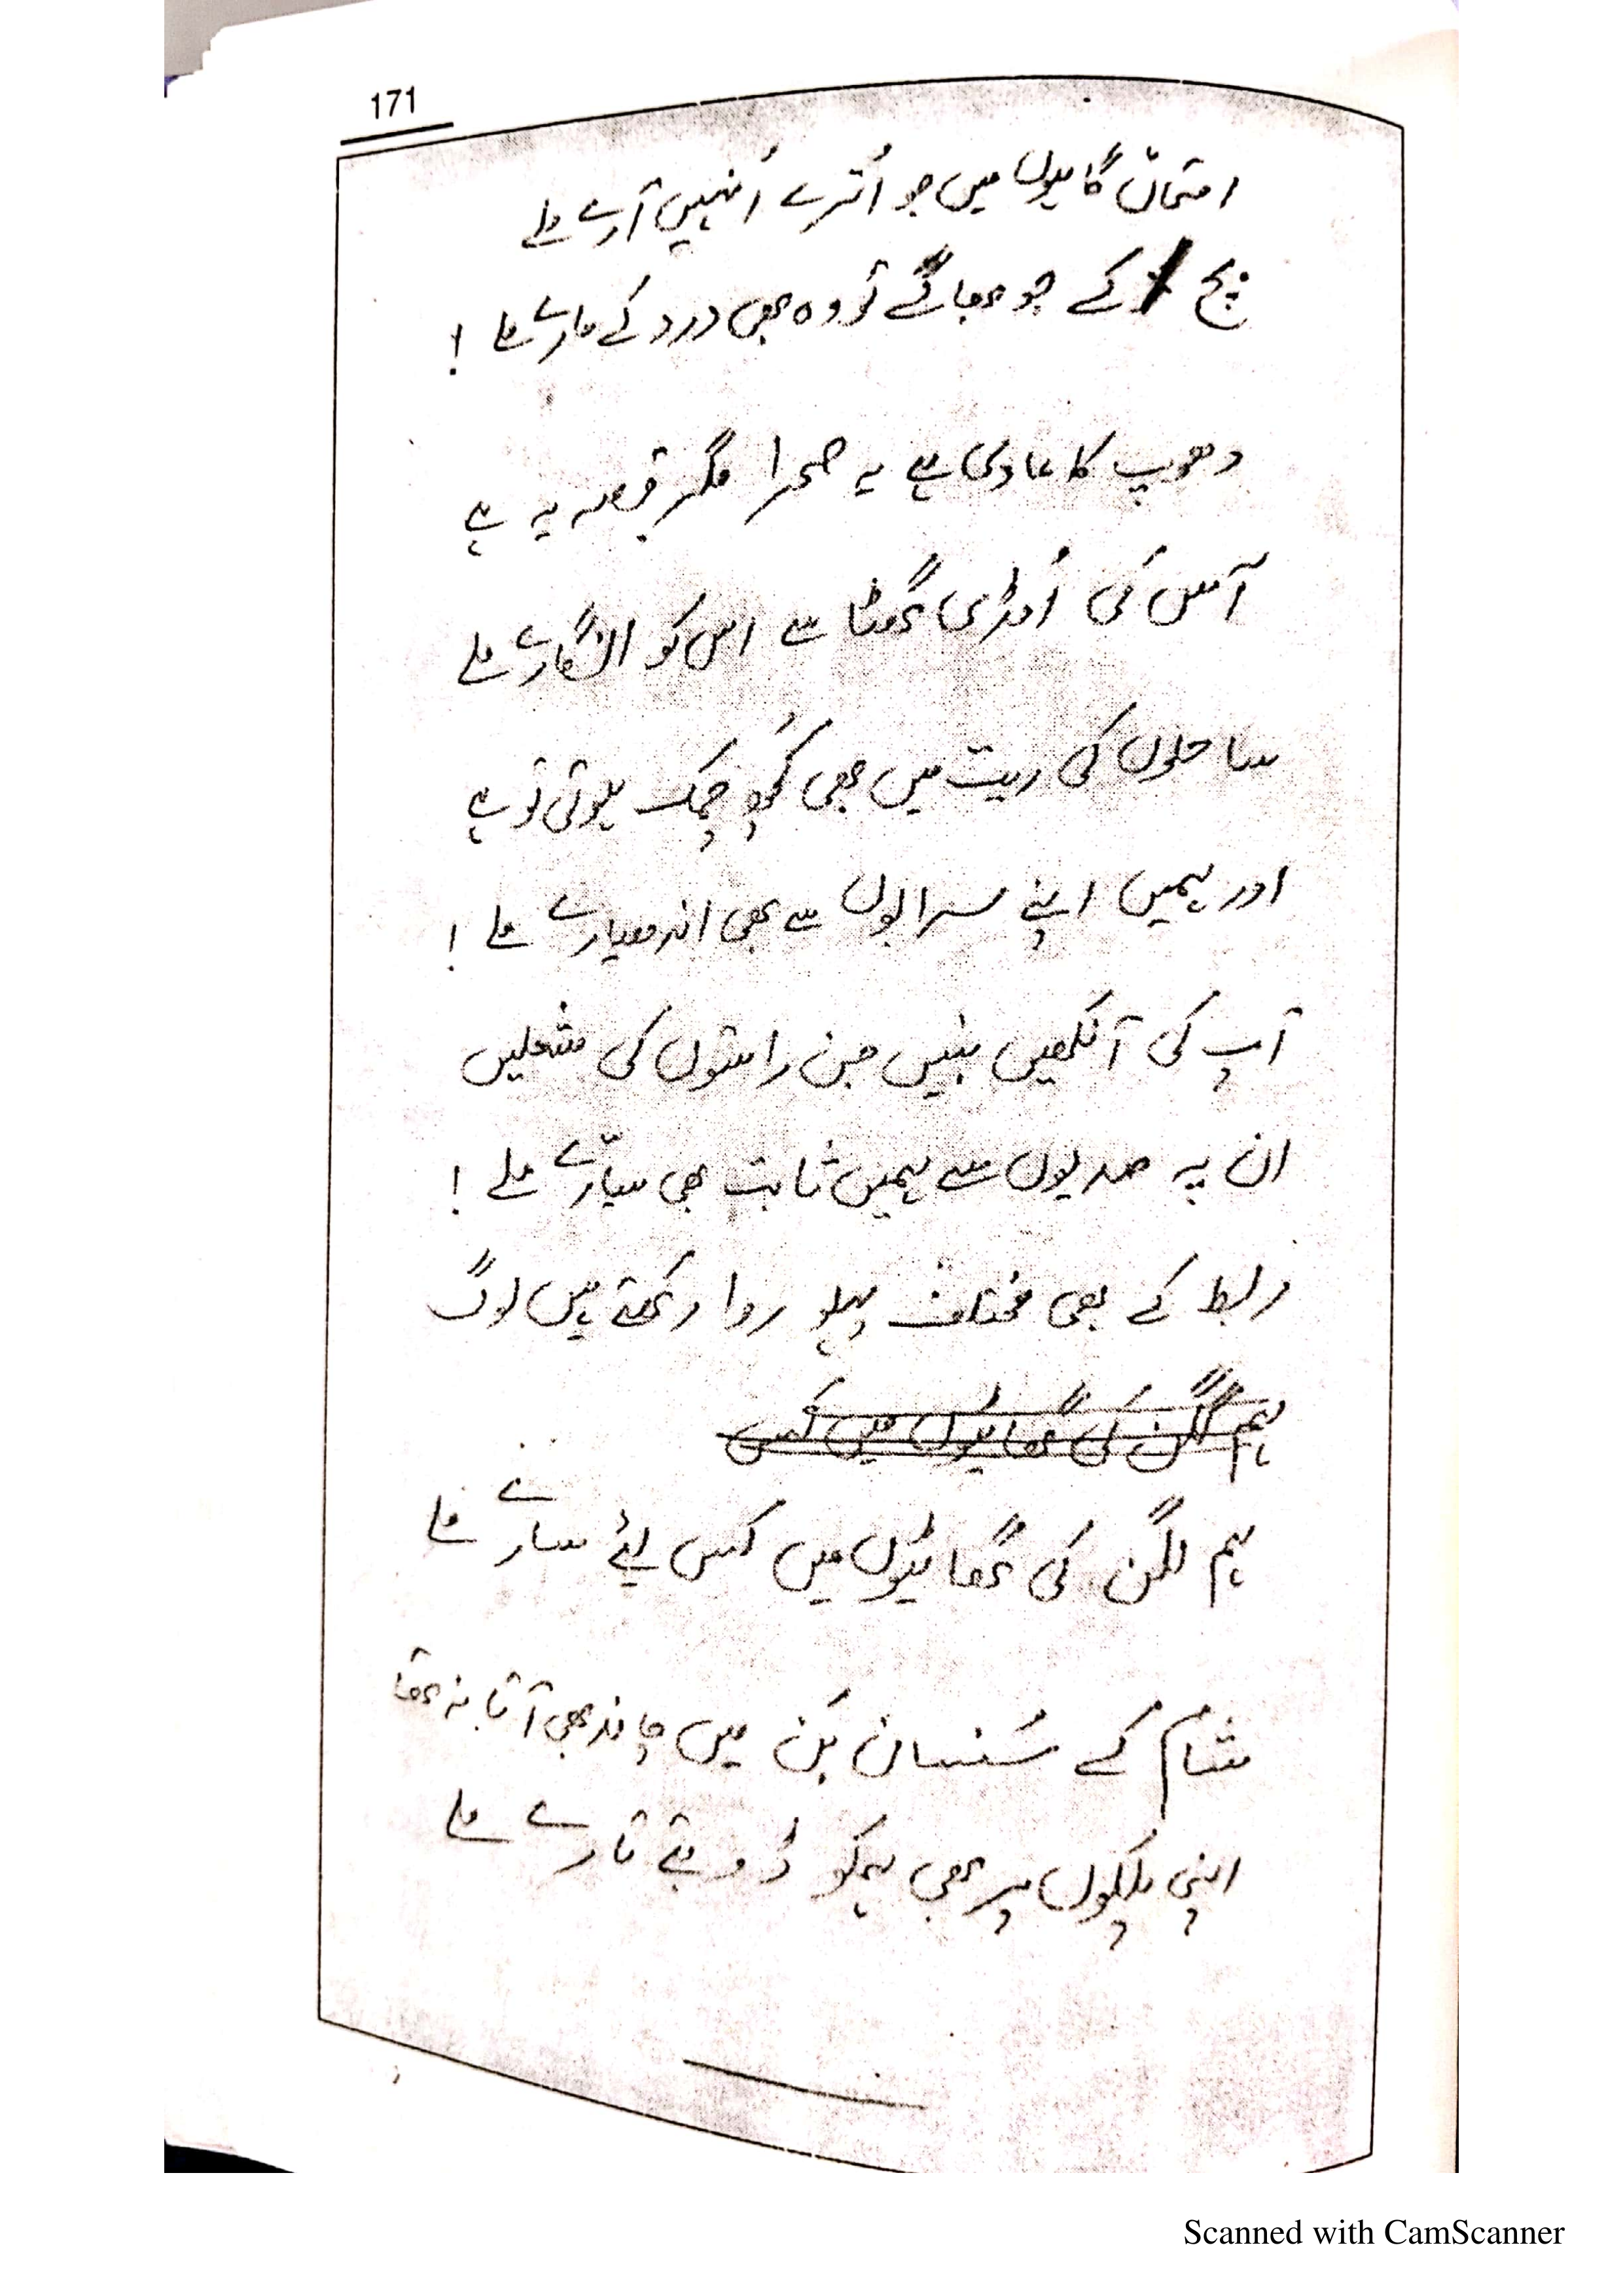 171
امتحاں گاہوں میں جو اُترے اُنہیں آرے ملے
بچ کے جو بھاگے تو وہ بھی درد کے مارے ملے !
دھوپ کا عادی ہے یہ صحرا مگر قصہ یہ ہے
آس کی اُمڈی گھٹا سے اس کو انگارے ملے
ساحلوں کی ریت میں بھی کُچھ چمک ہوتی تو ہے
اور ہمیں اپنے سرابوں سے بھی اندھیارے ملے !
آپ کی آنکھیں بنیں جن راستوں کی مشعلیں
ان پہ صدیوں سے ہمیں ثابت بھی سیّارے ملے !
ربط کے بھی مختلف پہلو روا رکھتے ہیں لوگ
ہم لگن کی گھاٹیوں میں کس
ہم لگن کی گھاٹیوں میں کس لیٔے سارے ملے
شام کے سُنسان بَن میں چاند بھی آتا نہ تھا
اپنی پلکوں پر بھی ہمکو ڈوبتے تارے ملے
Scanned with CamScanner